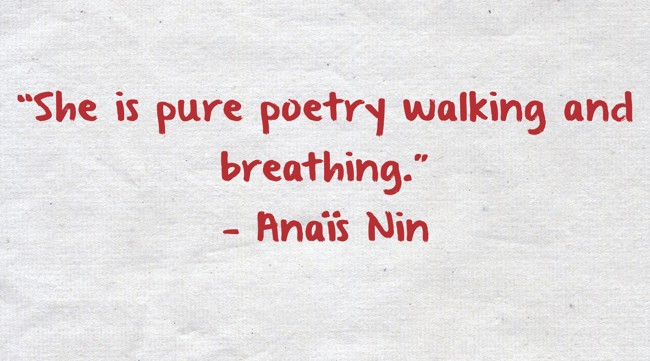 “She is pure poetry walking and
breathing.”
- Anaïs Nin